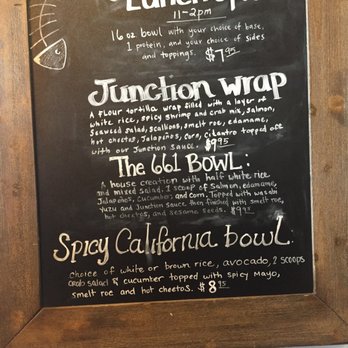 Lunch Sp
11-2pm
16 oz bowl with your choice of base,
1 protein, and your choice of sides
and toppings. $7.95
Junction Wrap
A flour tortilla wrap filled with a layer of
white rice, spicy shrimp and crab mix, salmon,
seaweed salad, scallions, smelt roe, edamame,
hot cheetos, Jalapeños, corn, cilantro topped off
with our Junction sauce. $9.95
The 661 Bowl:
A house creation with half white rice
and mixed salad. 1 scoop of salmon, edamame,
Jalapeños, cucumber, and corn. Topped with wasabi
yuzu and Junction sauce then finished with smelt roe,
hot cheetos, and sesame seeds. $9.95
Spicy California bowl:
choice of white or brown rice, avocado, 2 scoops
crab salad & cucumber topped with spicy mayo,
smelt roe and hot cheetos. $8.95